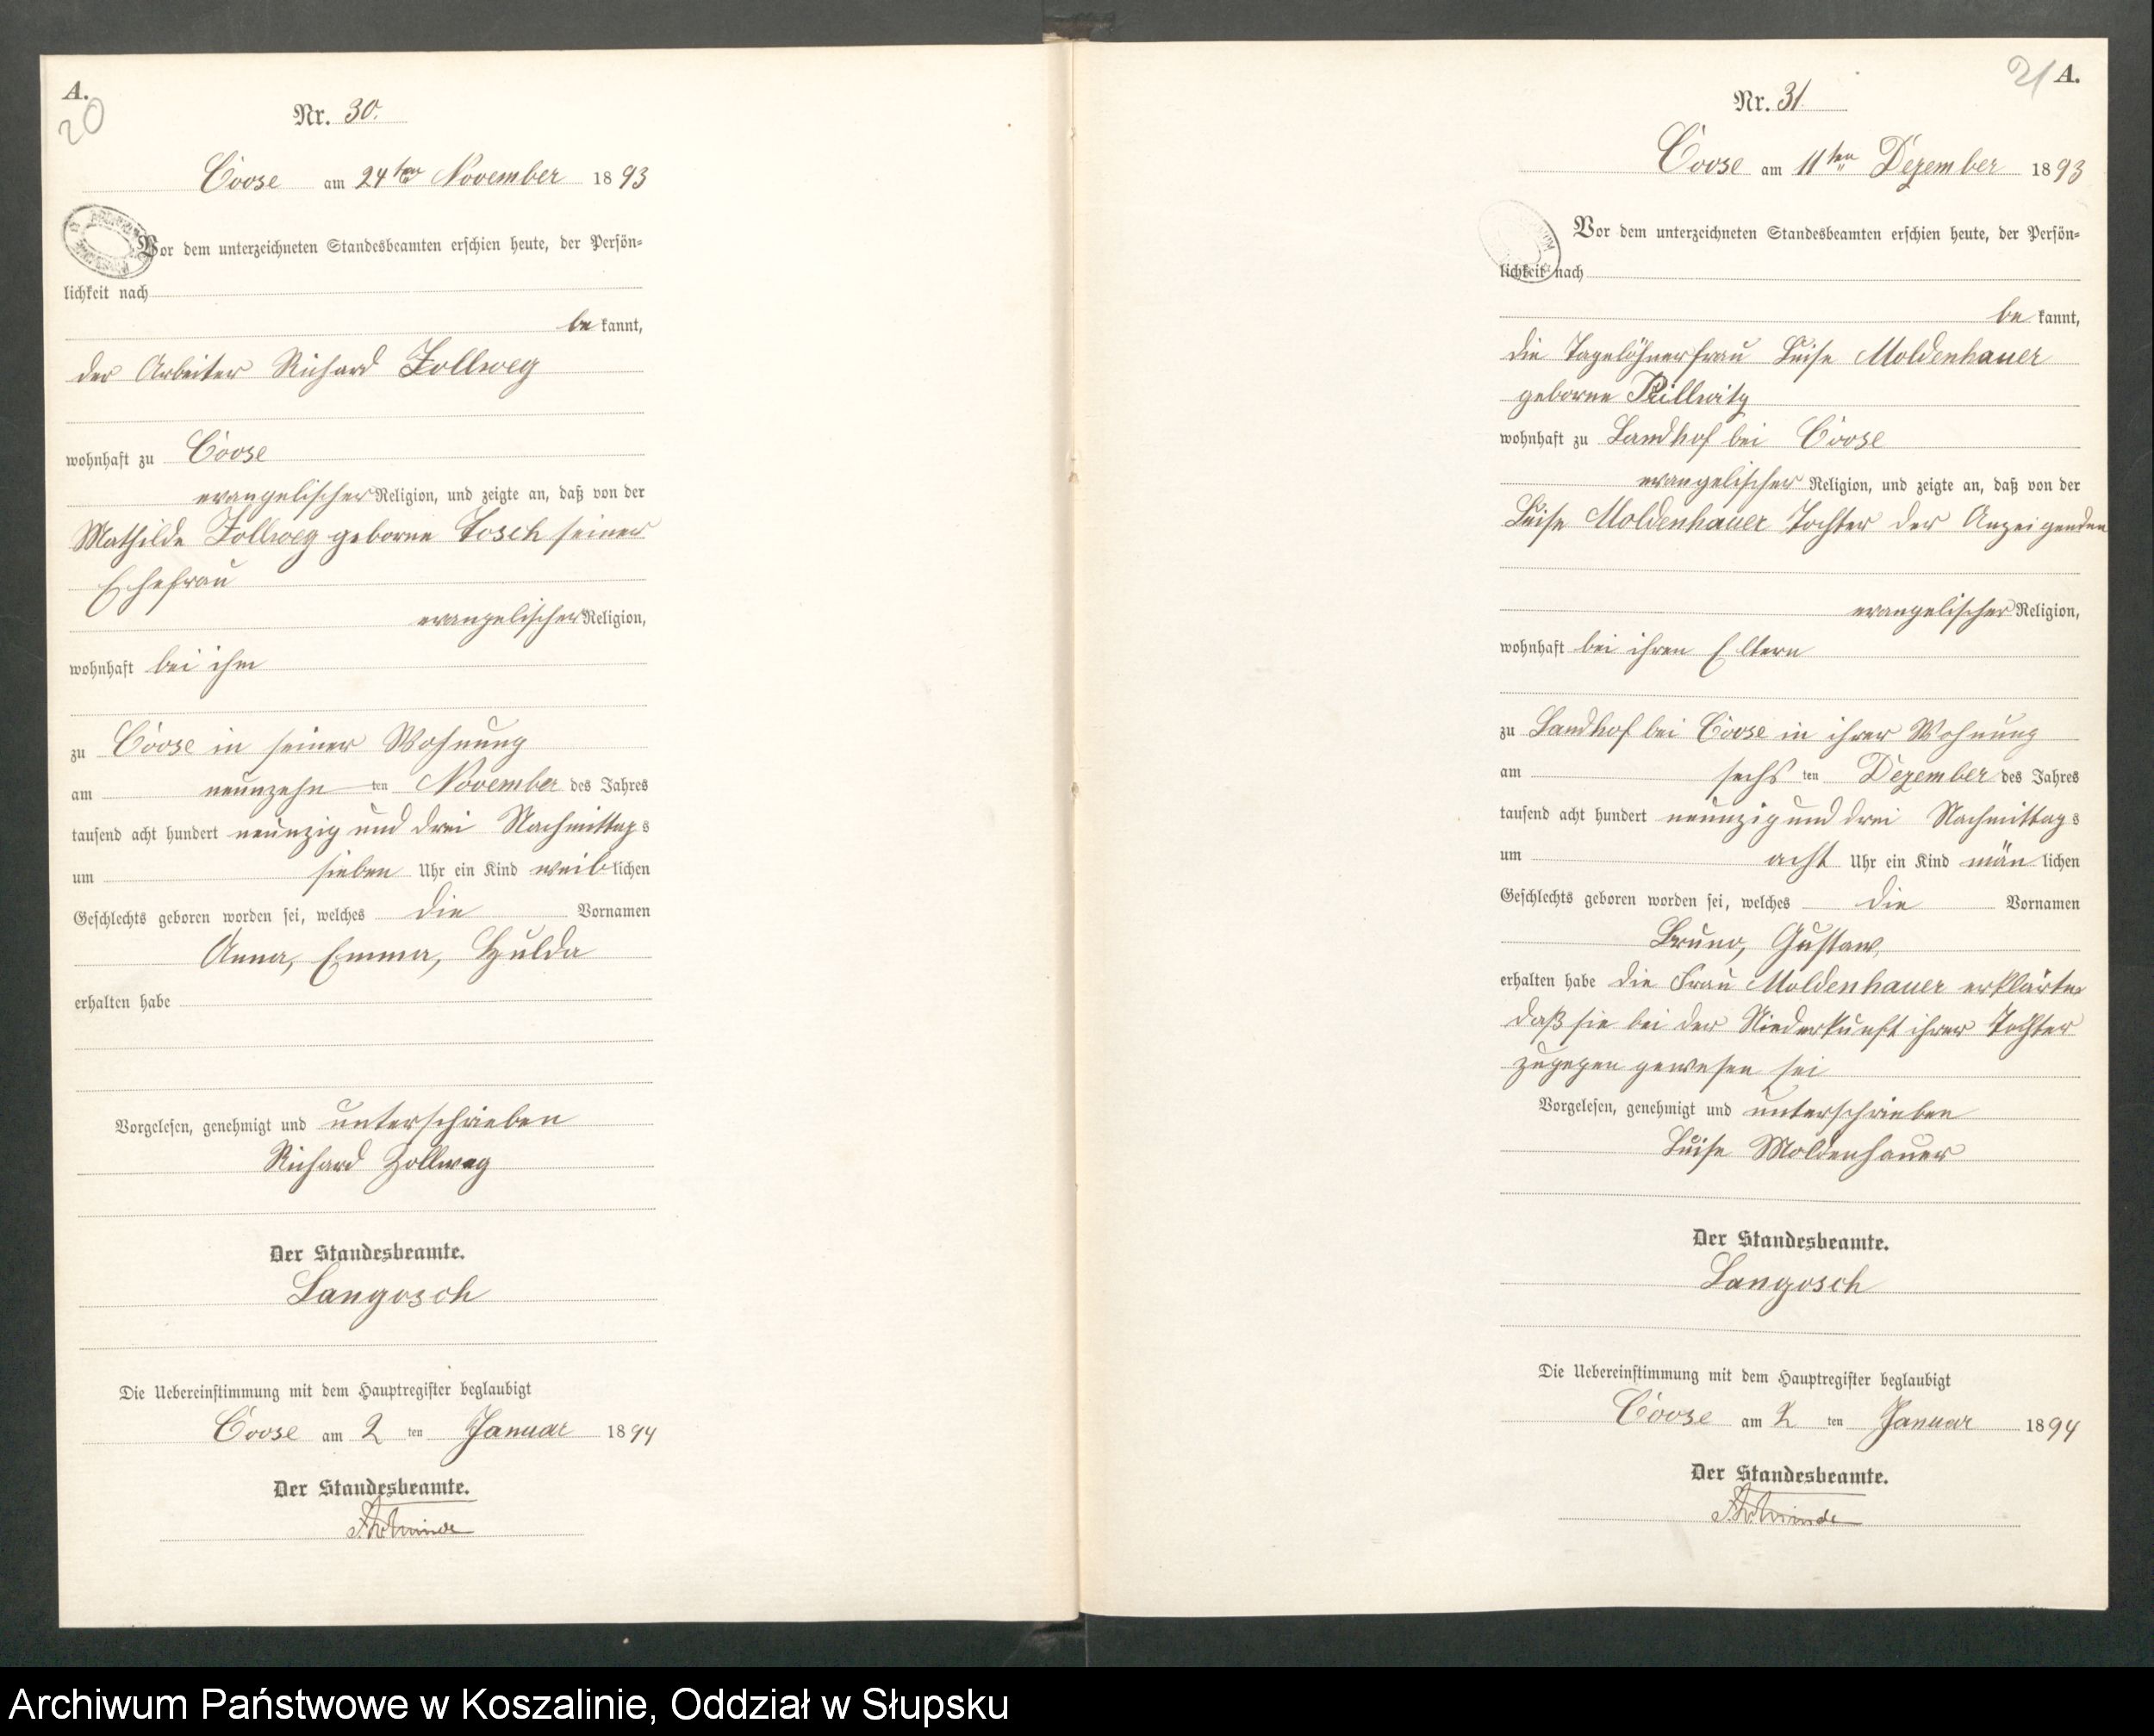 A.
20
Nr. 30.
Coose am 24ten November 1893
Vor dem unterzeichneten Standesbeamten erschien heute, der Persön-
lichkeit nach
be kannt,
der Arbeiter Richard Zollweg
wohnhaft zu Coose
evangelischer Religion, und zeigte an, daß von der
Mathilde Zollweg geborne Tosch seiner
Ehefrau
evangelischer Religion,
wohnhaft bei ihm
zu Coose in seiner Wohnung
am neunzehn ten November des Jahres
tausend acht hundert neunzig und drei Nachmittags
um sieben Uhr ein Kind weib lichen
Geschlechts geboren worden sei, welches die Vornamen
Anna, Emma, Hulda
erhalten habe
Vorgelesen, genehmigt und unterschrieben
Richard Zollweg
Der Standesbeamte.
Langosch
Die Uebereinstimmung mit dem Hauptregister beglaubigt
Coose am 2 ten Januar 1894
Der Standesbeamte.
21 A.
Nr. 31
Coose am 11ten Dezember 1893
Vor dem unterzeichneten Standesbeamten erschien heute, der Persön-
lichkeit nach
be kannt,
die Tagelöhnerfrau Luise Moldenhauer
geborne Pillwitz
wohnhaft zu Landhof bei Coose
evangelischer Religion, und zeigte an, daß von der
Luise Moldenhauer Tochter der Anzeigenden
evangelischer Religion,
wohnhaft bei ihren Eltern
zu Landhof bei Coose in ihrer Wohnung
am sechs ten Dezember des Jahres
tausend acht hundert neunzig und drei Nachmittags
um acht Uhr ein Kind män lichen
Geschlechts geboren worden sei, welches die Vornamen
Bruno, Gustaw,
erhalten habe die Frau Moldenhauer erklärte
daß sie bei der Niederkunft ihrer Tochter
zugegen gewesen sei
Vorgelesen, genehmigt und unterschrieben
Luise Moldenhauer
Der Standesbeamte.
Langosch
Die Uebereinstimmung mit dem Hauptregister beglaubigt
Coose am 2 ten Januar 1894
Der Standesbeamte.
Archiwum Państwowe w Koszalinie, Oddział w Słupsku